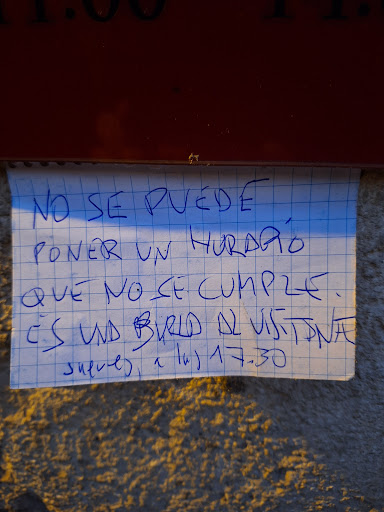 NO SE PUEDE
PONER UN HORARIO
QUE NO SE CUMPLE.
ES UNA BURLA AL VISITANTE
jueves, a las 17.30